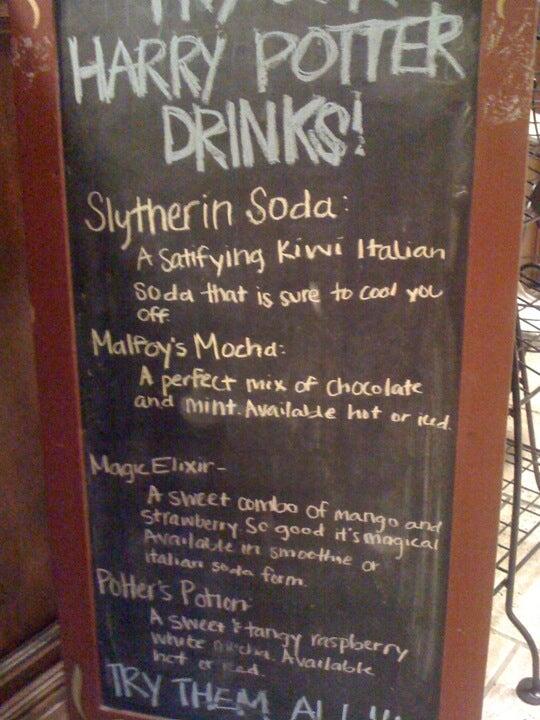 TRY OUR
HARRY POTTER
DRINKS!
Slytherin Soda:
A Satifying Kiwi Italian
Soda that is sure to cool you
off.
Malfoy's Mocha:
A perfect mix of chocolate
and mint. Available hot or iced.
Magic Elixir-
A sweet combo of mango and
strawberry. So good it's magical
Available in smoothie or
italian soda form.
Potter's Potion-
A sweet & tangy raspberry
white mocha. Available
hot or iced.
TRY THEM ALL!!!